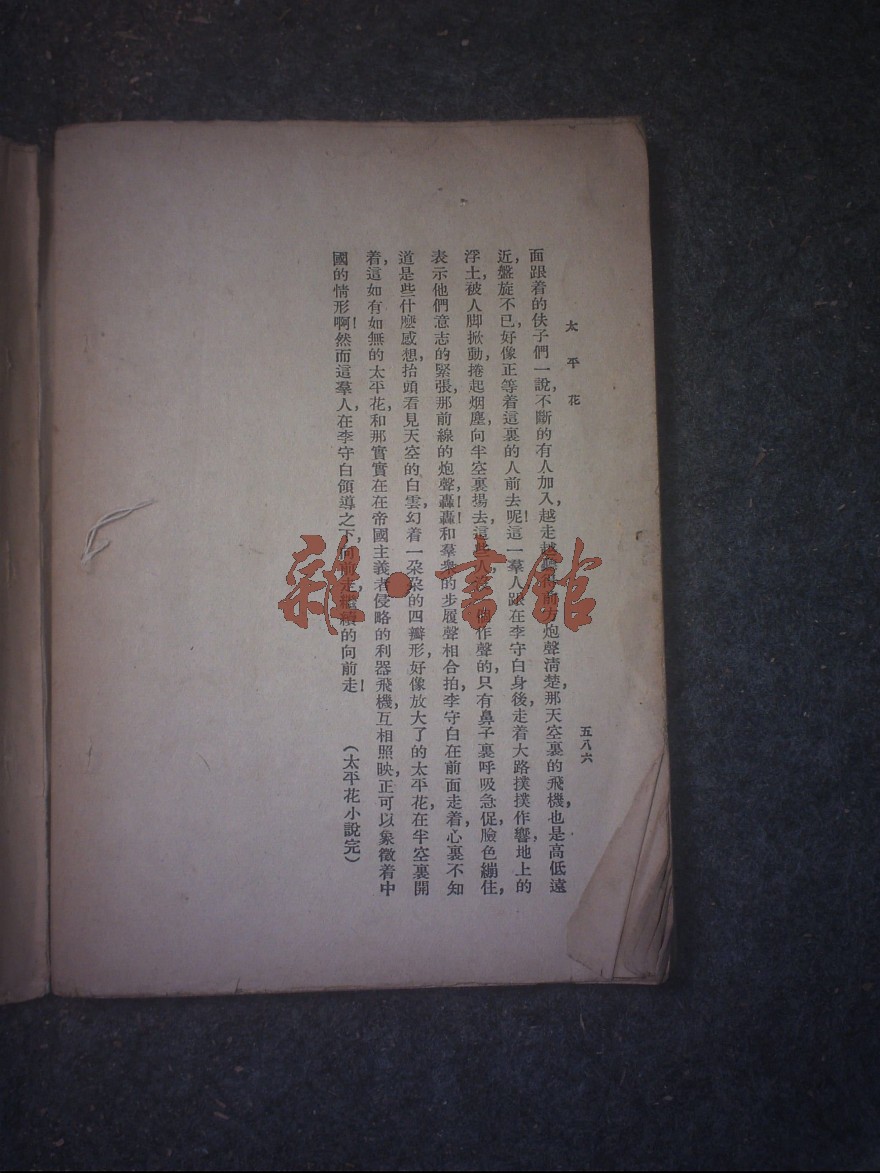 太平花
五八六
面跟着的伕子們一說，不斷的有人加入，越走越前方炮聲清楚，那天空裏的飛機，也是高低遠
近，盤旋不已，好像正等着這裏的人前去呢！這一羣人跟在李守白身後，走着大路撲撲作響，地上的
浮土，被人脚掀動，捲起烟塵，向半空裏揚去，這些人，作聲的，只有鼻子裏呼吸急促，臉色繃住，
表示他們意志的緊張，那前線的炮聲，轟！轟！和羣衆的步履聲相合拍，李守白在前面走着，心裏不知
道是些什麽感想，抬頭看見天空的白雲，幻着一朶朶的四瓣形，好像放大了的太平花，在半空裏開
着，這如有如無的太平花，和那實實在在帝國主義者侵略的利器飛機，互相照映，正可以象徵着中
國的情形啊！然而這羣人，在李守白領導之下，向前走，繼續的向前走！
（太平花小說完）
雜·書館